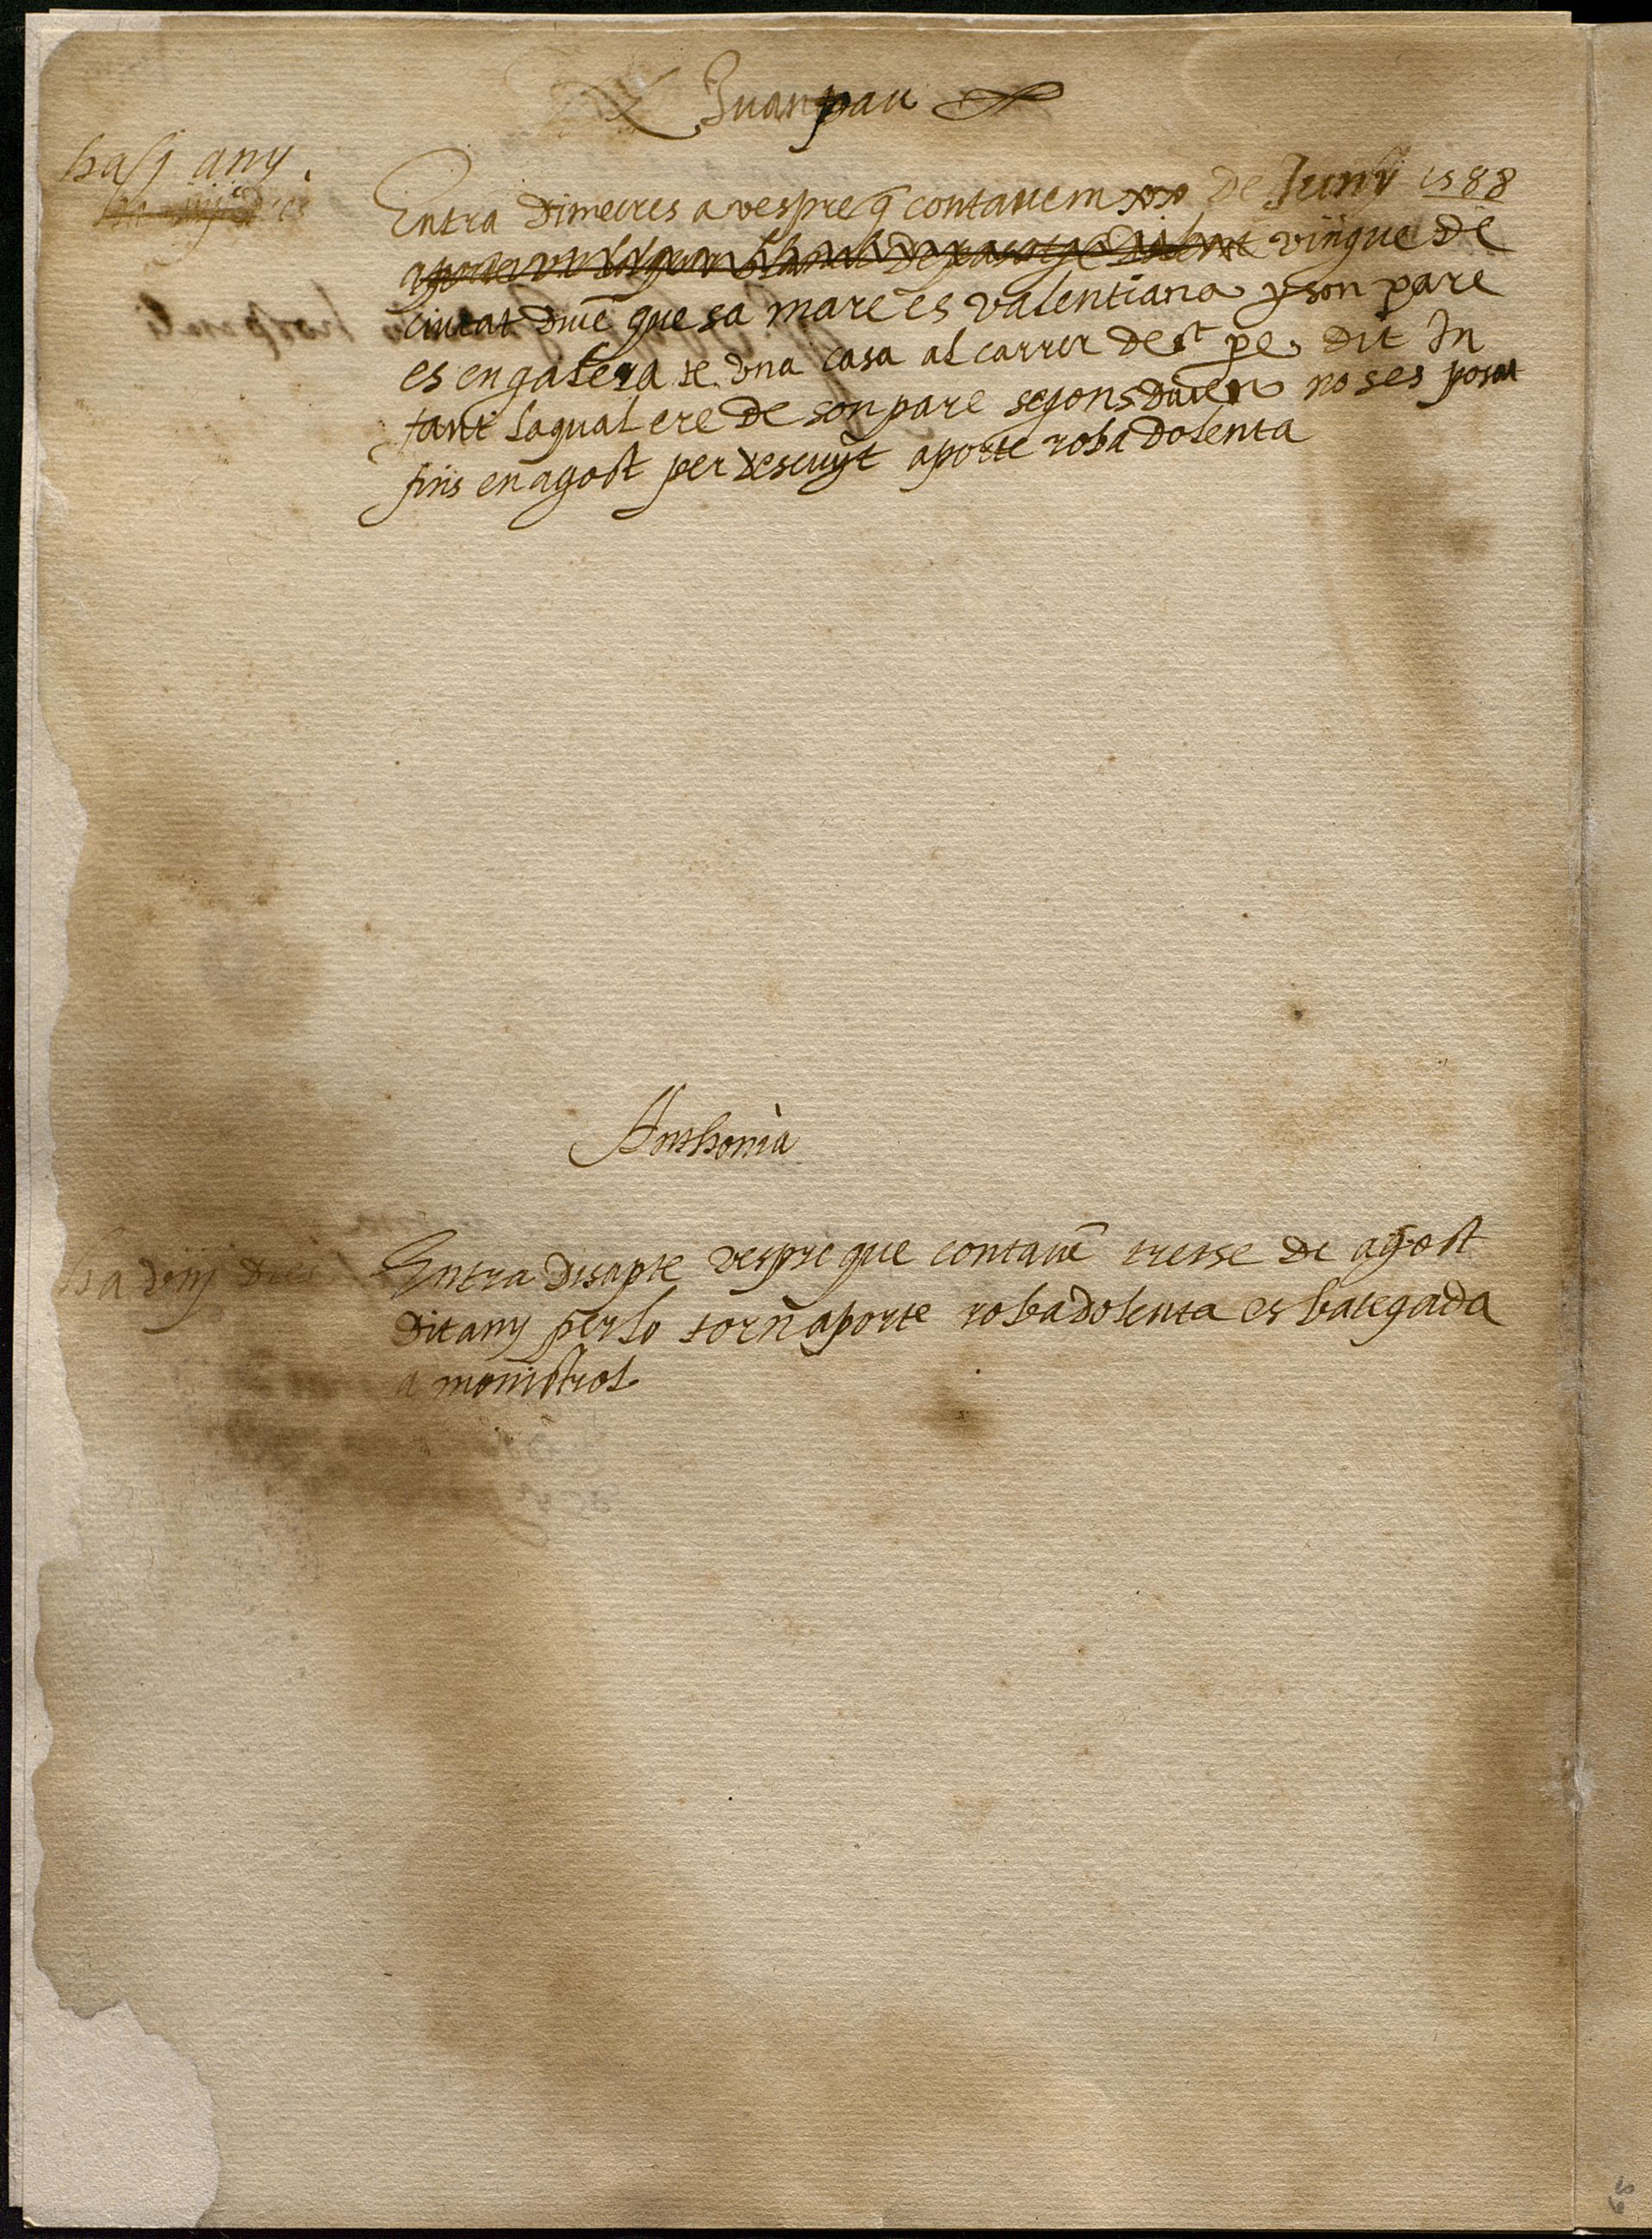 Juan pau
ha j any.
Entra dimecres a vespre q contauem xxx de Juny 1588
vingue de
ciutat diuē que sa mare es valentiana y son pare
es en galera te vna casa al carrer de st pe dit In
fant laqual ere de son pare segons diuen no ses posat
fins en agost per descuyt aporte roba dolenta
Anthonia
ha viij dies
Entra disapte vespre que contauē tretse de agost
dit any per lo torn aporte roba dolenta es bategada
a monistrol